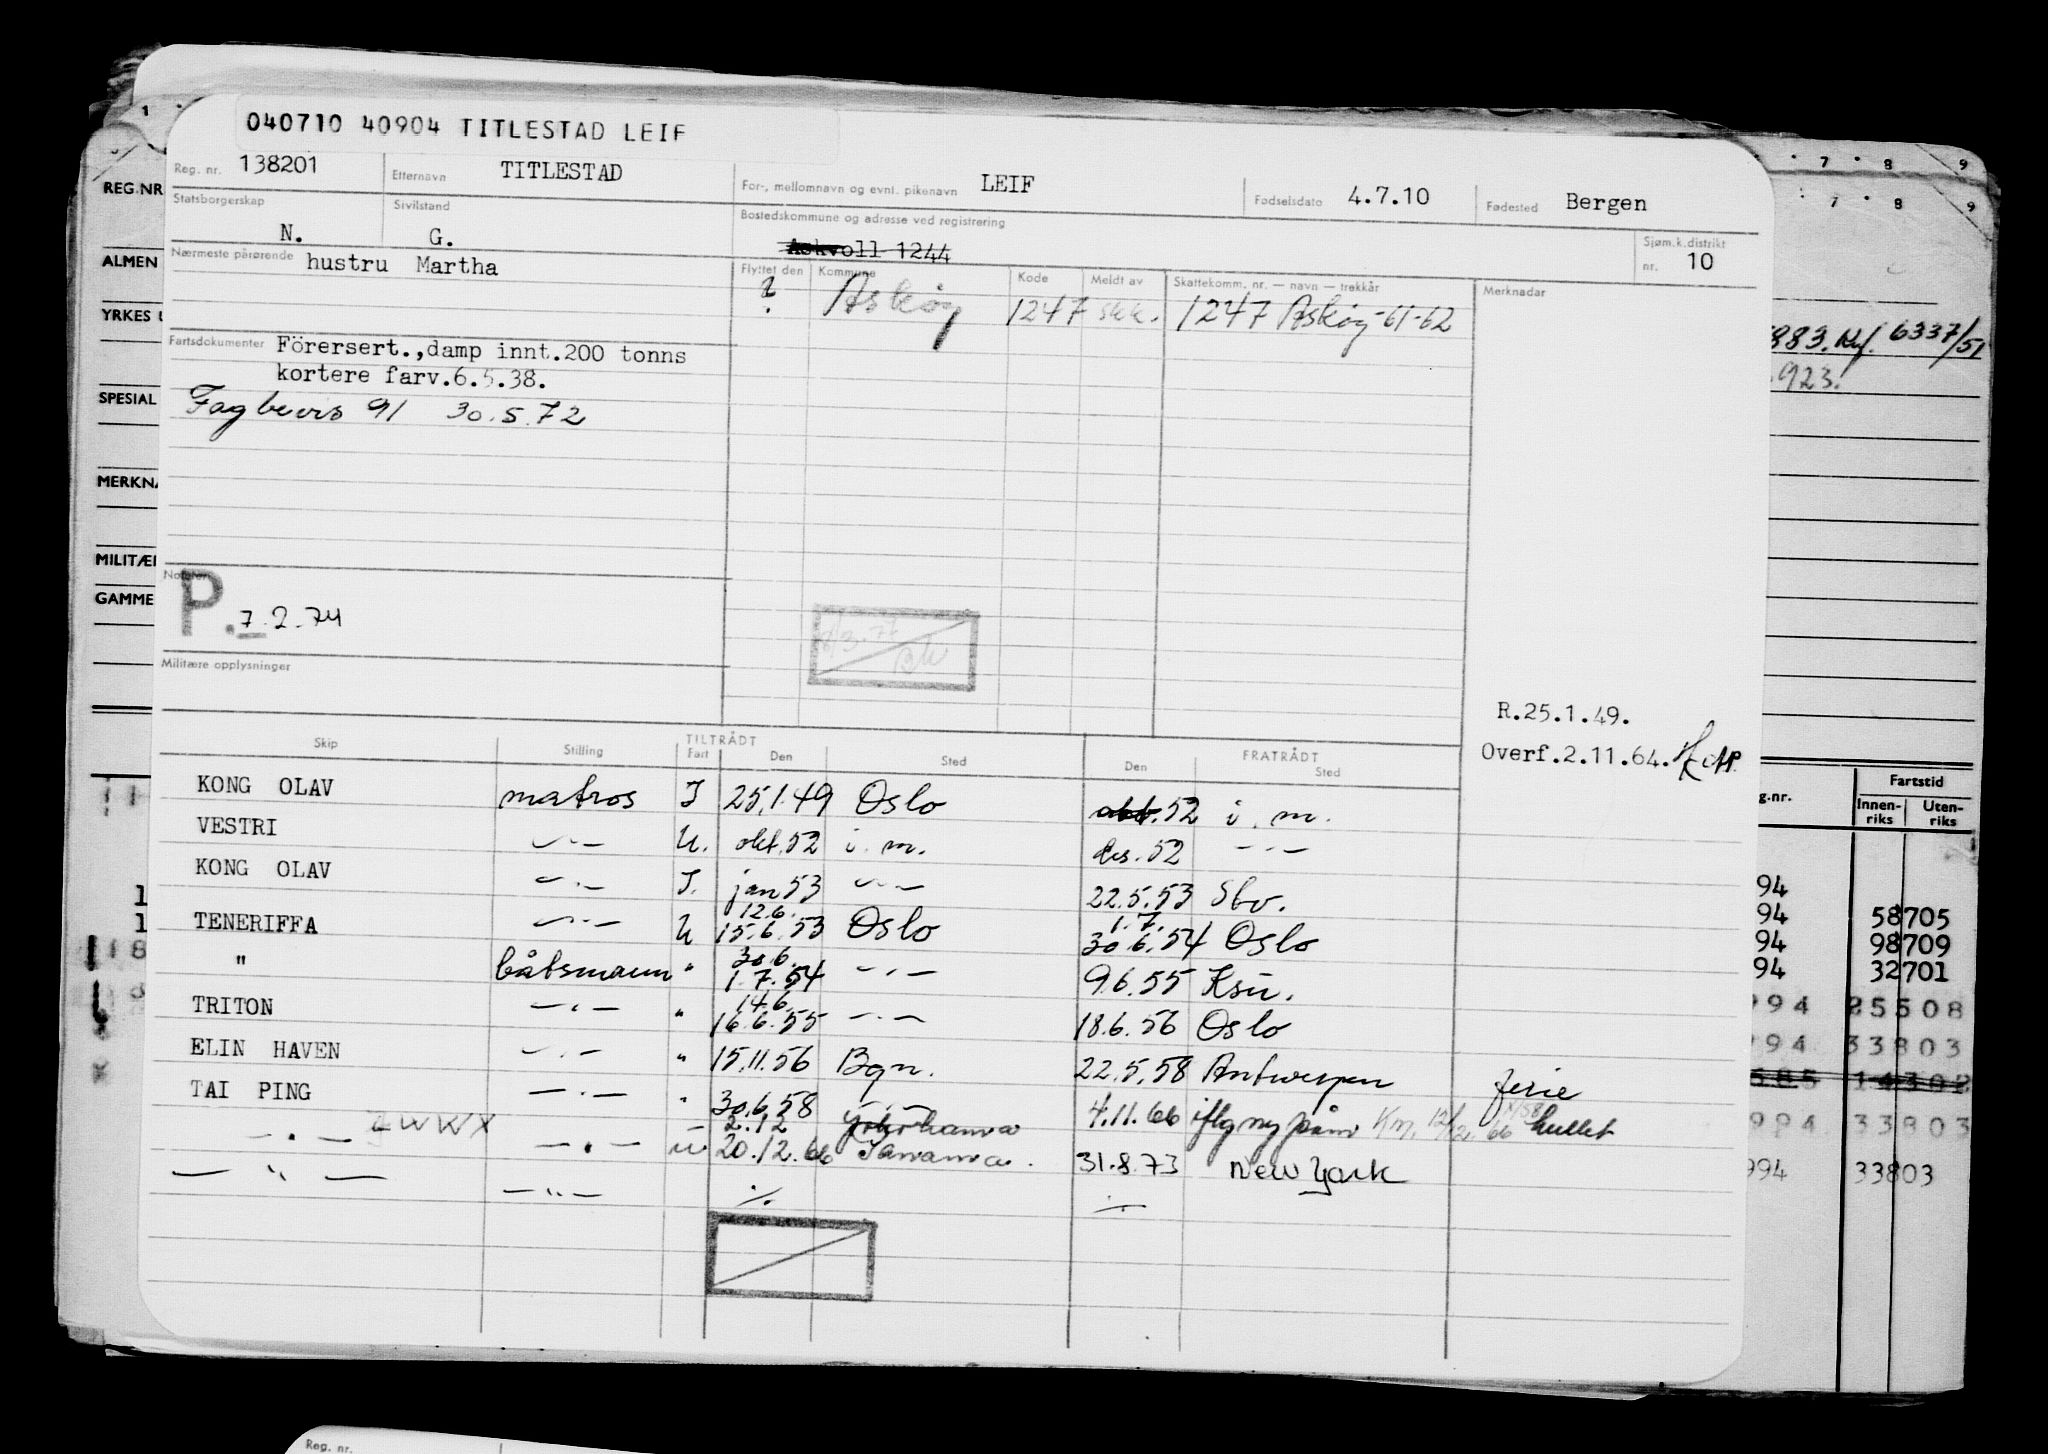 040710 40904 TITLESTAD LEIF
Reg. nr. 138201 Etternavn TITLESTAD For-, mellomnavn og evnt. pikenavn LEIF Fødselsdato 4.7.10 Fødested Bergen
Statsborgerskap N. Sivilstand G. Bostedskommune og adresse ved registrering Askvoll 1244 Sjøm.k.distrikt nr. 10
Nærmeste pårørende hustru Martha
Flyttet den Kommune Kode Meldt av Skattekomm. nr. — navn — trekkår Merknadar
? Askøy 1247 skk. 1247 Askøy-61-62
Fartsdokumenter Förersert.,damp innt.200 tonns
kortere farv.6.5.38.
Fagbevis 91 30.5.72
Notater
P. 7.2.74
Militære opplysninger
R.25.1.49.
Overf.2.11.64.
Skip Stilling TILTRÅDT Fart Den Sted FRATRÅDT Den Sted
KONG OLAV matros I 25.1.49 Oslo okt.52 i.m.
VESTRI —"— U. okt.52 i.m. des.52 —"—
KONG OLAV —"— I. jan 53 —"— 22.5.53 Sbv.
12.6. 1.7.
TENERIFFA —"— U 15.6.53 Oslo 30.6.54 Oslo
30.6.
" båtsmann " 1.7.54 —"— 9.6.55 Ksu.
14.6.
TRITON —"— " 16.6.55 —"— 18.6.56 Oslo
ELIN HAVEN —"— " 15.11.56 Bgn. 22.5.58 Antwerpen ferie
TAI PING —"— " 30.6.58 —"— 4.11.66 iflg ny påm hullet
2.12 Yokohama
—"— LWWX —"— U 20.12.66 Panama. 31.8.73 New York
—"— —"— ./. ./.
REG.NR
ALMEN
YRKES
SPESIAL
MERKNA
MILITÆR
GAMME
7 8 9
7 8 9
883. 6337/51
923.
g.nr. Fartstid
Innen-riks Uten-riks
94
94 58705
94 98709
94 32701
994 25508
994 33803
585 14302
994 33803
994 33803
Reg. nr.